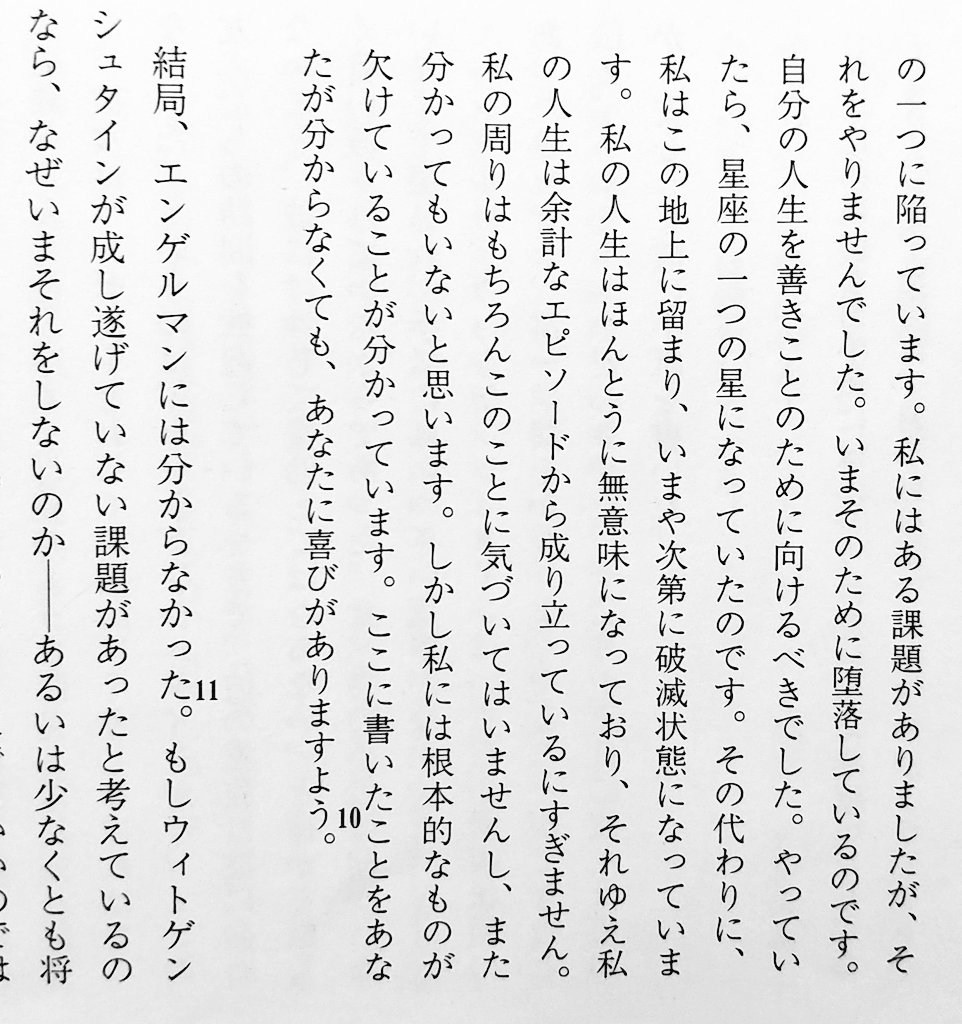 の一つに陥っています。私にはある課題がありましたが、そ
れをやりませんでした。いまそのために堕落しているのです。
自分の人生を善きことのために向けるべきでした。やってい
たら、星座の一つの星になっていたのです。その代わりに、
私はこの地上に留まり、いまや次第に破滅状態になっていま
す。私の人生はほんとうに無意味になっており、それゆえ私
の人生は余計なエピソードから成り立っているにすぎません。
私の周りはもちろんこのことに気づいてはいませんし、また
分かってもいないと思います。しかし私には根本的なものが
欠けていることが分かっています。ここに書いたことをあな
たが分からなくても、あなたに喜びがありますよう。10
結局、エンゲルマンには分からなかった。11もしウィトゲン
シュタインが成し遂げていない課題があったと考えているの
なら、なぜいまそれをしないのか――あるいは少なくとも将